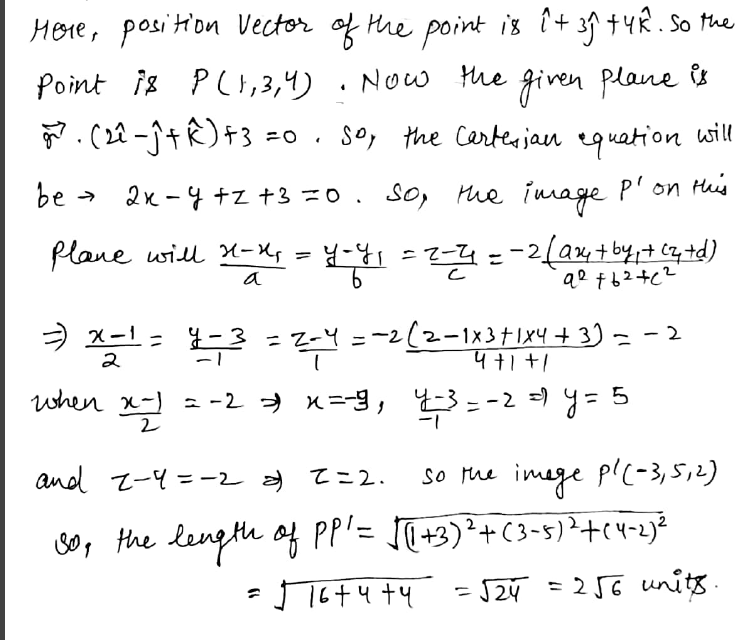 Here, position Vector of the point is î + 3ĵ + 4k̂. So the
Point is P(1,3,4). Now the given plane is
r⃗.(2î - ĵ + k̂) + 3 = 0. So, the Cartesian equation will
be → 2x - y + z + 3 = 0. So, the image P' on this
Plane will (x-x₁)/a = (y-y₁)/b = (z-z₁)/c = -2(ax₁+by₁+cz₁+d)/(a²+b²+c²)
⇒ (x-1)/2 = (y-3)/-1 = (z-4)/1 = -2(2-1×3+1×4+3)/(4+1+1) = -2
when (x-1)/2 = -2 ⇒ x=-3, (y-3)/-1 = -2 ⇒ y = 5
and z-4 = -2 ⇒ z=2. So the image P'(-3,5,2)
So, the length of PP' = √((1+3)²+(3-5)²+(4-2)²)
= √(16+4+4) = √24 = 2√6 units.